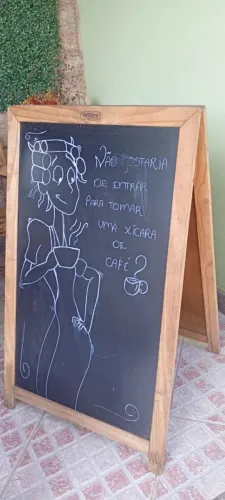 NÃO GOSTARIA
DE ENTRAR
PARA TOMAR
UMA XÍCARA
DE
CAFÉ?